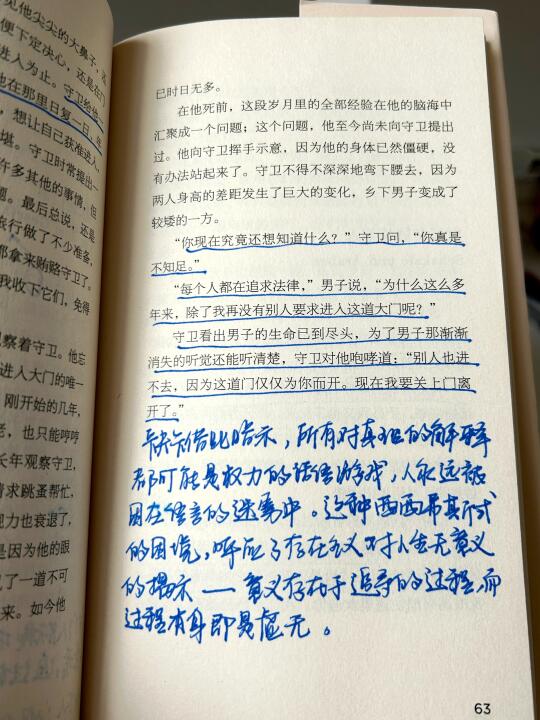 见他尖尖的大鼻子，还
便下定决心，还是在门
进入为止。守卫给他一
他在那里日复一日、年
，想让自己获准进入，
堪。守卫时常提出一
许多其他的事情，但
题。最后总说，还是
旅行做了不少准备，
都拿来贿赂守卫了。
我收下它们，免得
观察着守卫。他忘
进入大门的唯一
刚开始的几年，
老，也只能哼哼
长年观察守卫，
请求跳蚤帮忙，
视力也衰退了，
是因为他的眼
见了一道不可
来。如今他
已时日无多。
在他死前，这段岁月里的全部经验在他的脑海中
汇聚成一个问题；这个问题，他至今尚未向守卫提出
过。他向守卫挥手示意，因为他的身体已然僵硬，没
有办法站起来了。守卫不得不深深地弯下腰去，因为
两人身高的差距发生了巨大的变化，乡下男子变成了
较矮的一方。
“你现在究竟还想知道什么？”守卫问，“你真是
不知足。”
“每个人都在追求法律，”男子说，“为什么这么多
年来，除了我再没有别人要求进入这道大门呢？”
守卫看出男子的生命已到尽头，为了男子那渐渐
消失的听觉还能听清楚，守卫对他咆哮道：“别人也进
不去，因为这道门仅仅为你而开。现在我要关上门离
开了。”
卡夫卡借此暗示，所有对真理的解释
都可能是权力的话语游戏，人永远被
困在语言的迷宫中。这种西西弗斯式
的困境，呼应了存在主义对人生无意义
的揭示——意义存在于追寻的过程，而
过程本身即是虚无。
63